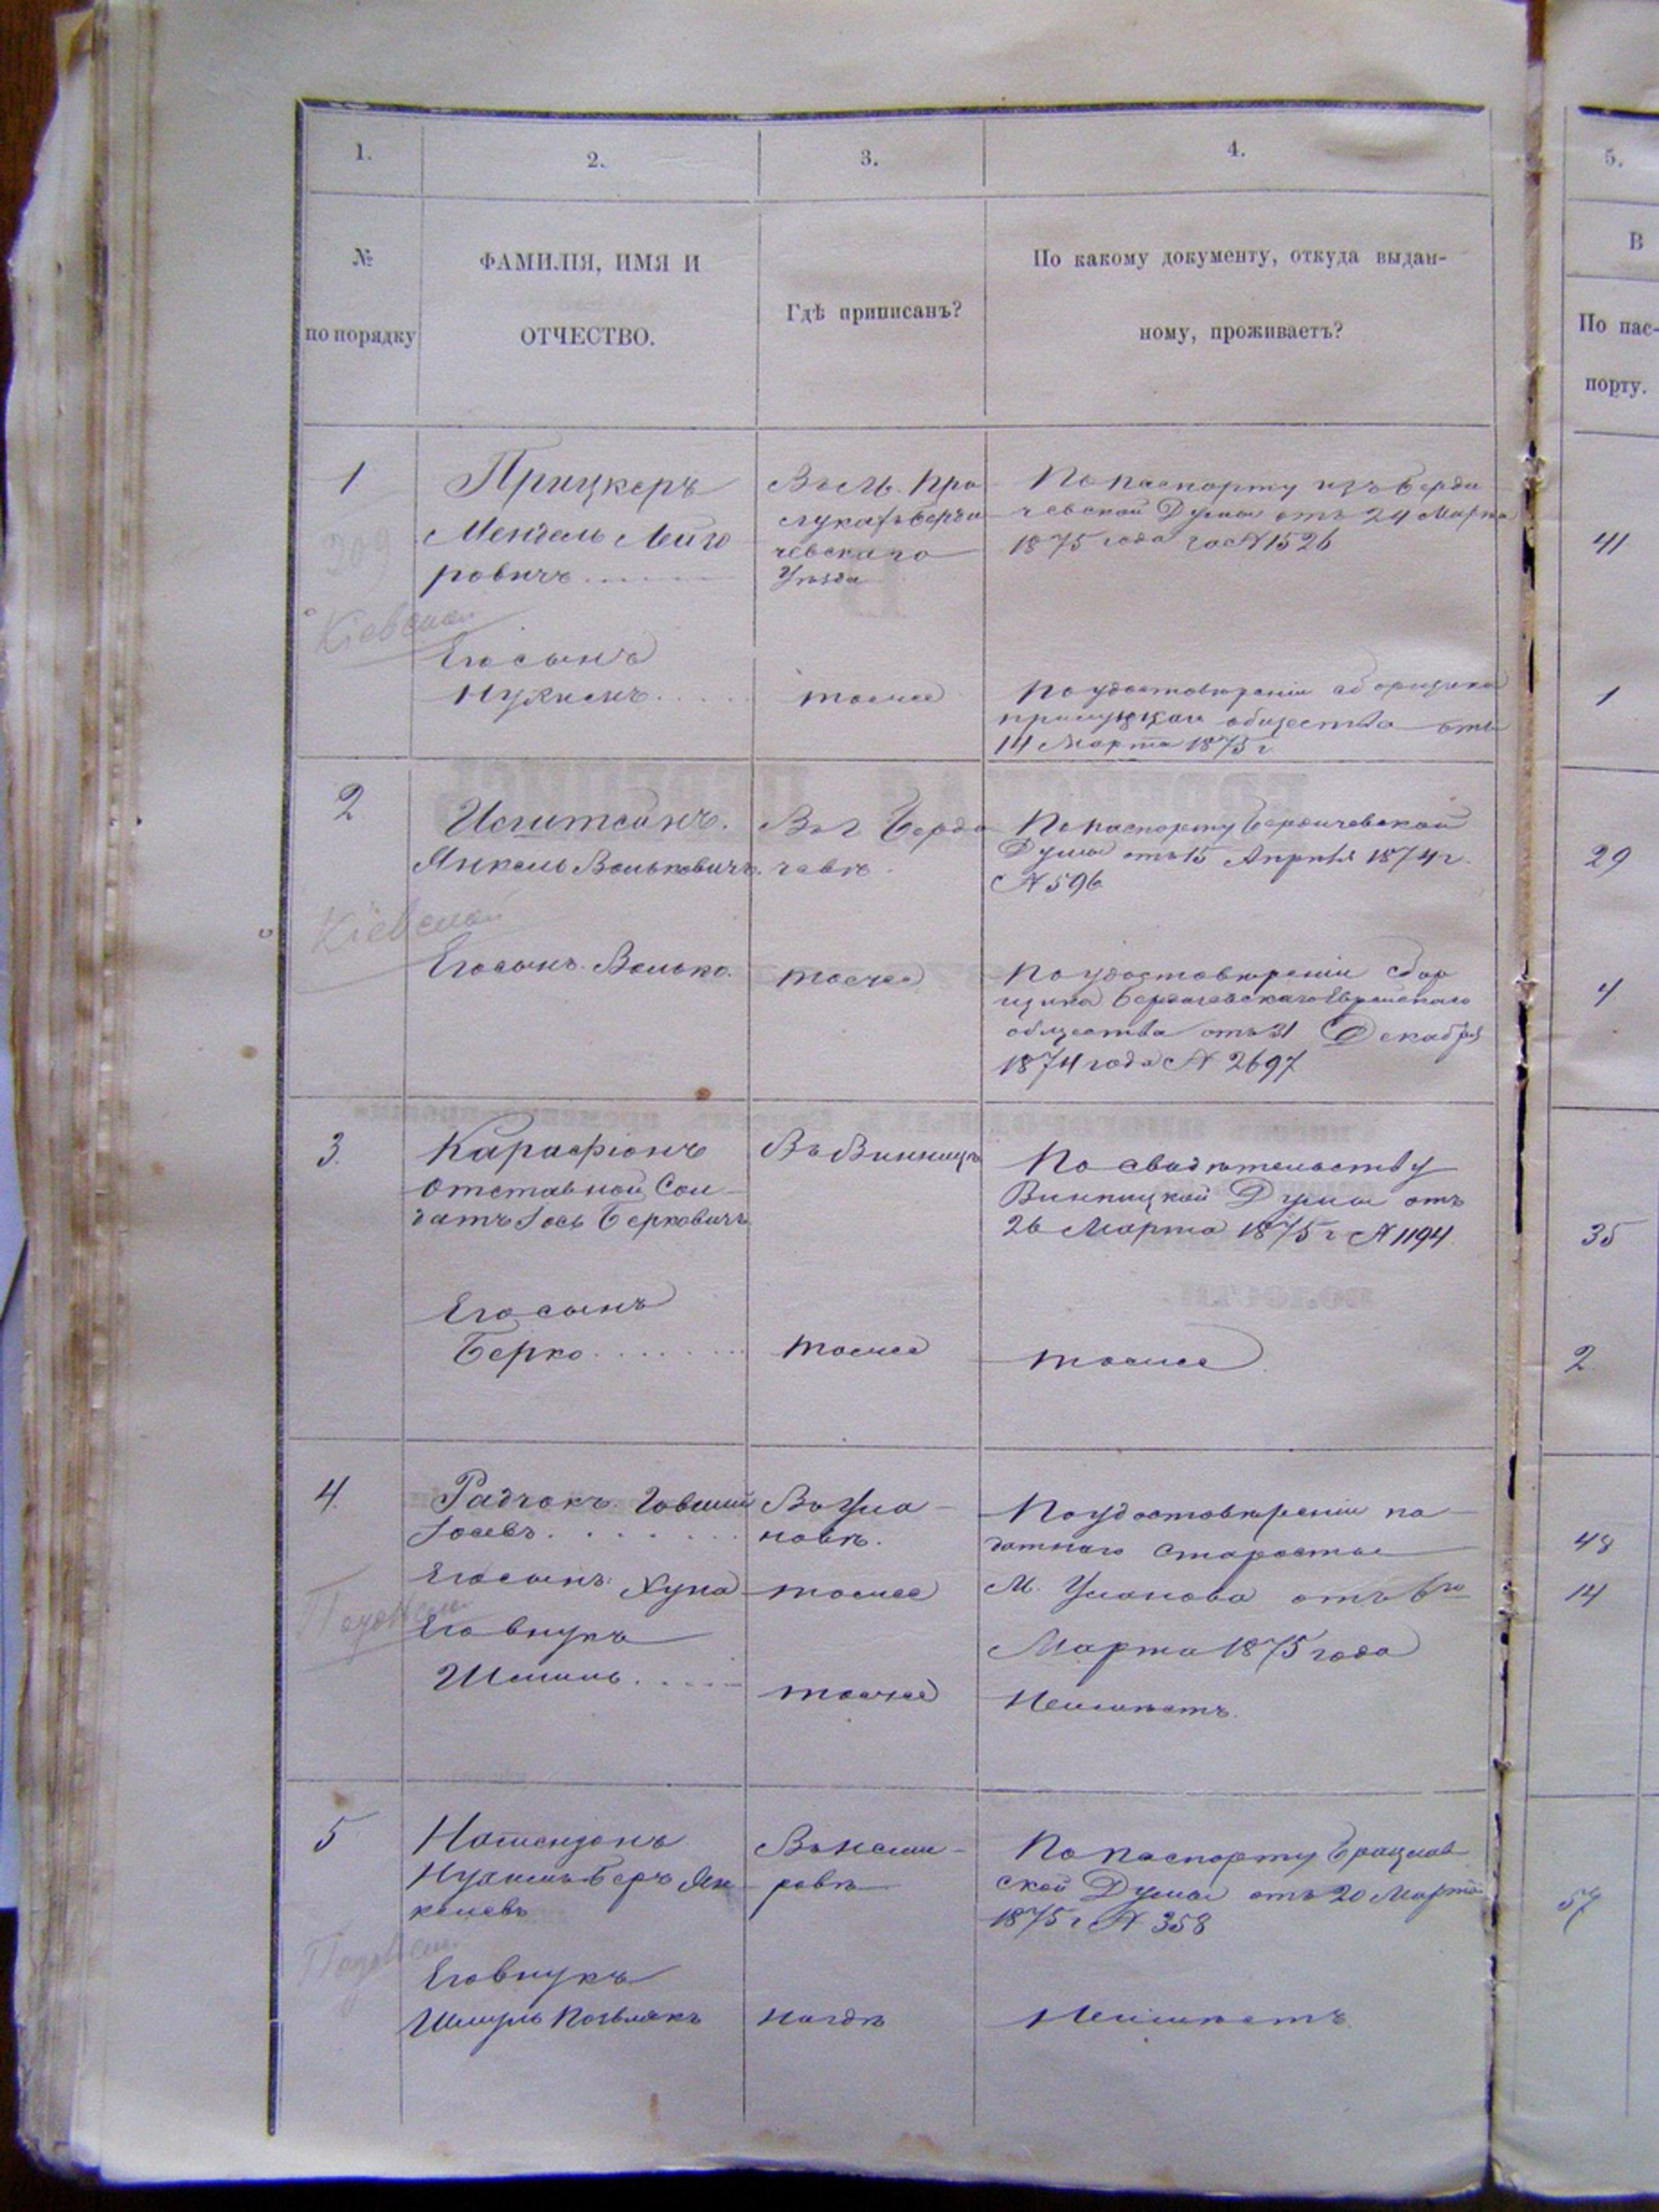 1.
2.
3.
4.
5.
№
по порядку
ФАМИЛІЯ, ИМЯ И
ОТЧЕСТВО.
Гдѣ приписанъ?
По какому документу, откуда выдан-
ному, проживаетъ?
В
По пас-
порту.
1
Прицкеръ
Мендель Лейзо
ровичъ
Кіевской
Бердичевскаго
Уѣзда
По паспорту изъ Берди
чевской Думы отъ 24 Марта
1875 года за № 1526
41
Его сынъ
Нухимъ
тоже
По удостовѣренію сборщика
общества отъ
14 Марта 1875 г
1
2
Янкель Волковичъ
Въ г Берди
чевѣ
По паспорту Бердичевской
Думы отъ 15 Апрѣля 1874 г.
№ 596
29
Кіевской
Его сынъ Волько
тоже
По удостовѣренію сбор
щика Бердичевскаго Еврейскаго
общества отъ 31 Декабря
1874 года № 2697
4
3.
Отставной Сол
датъ Іось Берковичъ
Въ Винницѣ
По свидѣтельству
Винницкой Думы отъ
26 Марта 1875 г № 1194
35
Его сынъ
Берко
тоже
тоже
2
4.
Іосевъ
Въ Ула
новѣ.
По удостовѣренію по
датнаго Старосты
М. Уланова отъ 6го
Марта 1875 года
48
Его сынъ
тоже
14
Его внукъ
тоже
Неимѣетъ.
5
Натанзонъ
Нухимъ Беръ Ян
келевъ
Въ Неми
ровѣ
По паспорту Брацлав
ской Думы отъ 20 Марта
1875 г № 358
57
Его внукъ
Шмуль
нигдѣ
Неимѣетъ